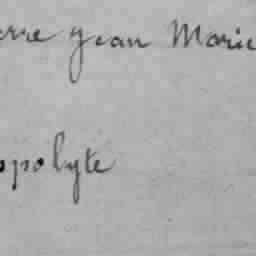 erre Jean Marie
ppolyte